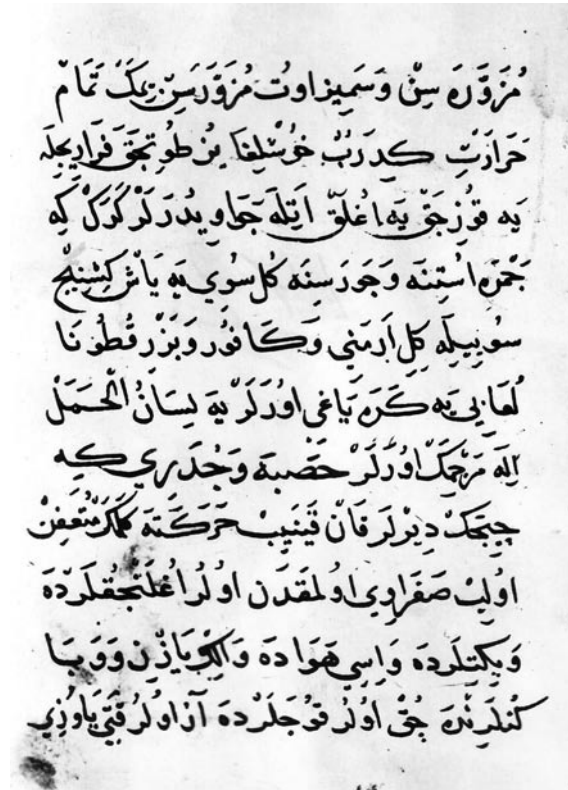 مُزَوَّرَه سِنْ وَسَمِيز اوُتْ مُزَوَّرَسِنْ يِمَكْ تَمَامْ
حَرَارَتِ كِدَرَبْ خُوشْلِغَا يُزْ طُوتِجَقْ فَرارِيجِلَه
يَه قوُزِجَقْ يَه اغُلَقْ اَتِلَه جَاوِيدُرَلَرْ كَرَكْ كِه
جَمْرَه اُسْتِنَه وَجَوَرَسِنَه كُلْ سُويِ يَه يَاشْ كِشْنِيجْ
سُوييِلَه كِلِ اَرمَنيِ وَكَافوُر وَبَزْرِ قُطُونَا
لُعَابيِ يَه كَرَه يَاغيِ اوُرَلَرْ يَه لِسَانُ الْحَمَلْ
اِلَه مَرْحَمَكْ اوُرَلَرْ حَصْبَه وَجُدَرِي كِه
چِچَكْ دِيْرلَر قَانْ قَيْنَيِبْ حَرَكَتَه كَلمَكْ مُتَعَفِنْ
اوُلِبْ صَفْرَاوِي اوُلمَقْدَن اوُلُر اغُلَنْجُقلَرْدَه
وَيِكِتلَردَه وَاِسِي هَوَا دَه وَاِلْكْ يَازِنْ وَوَبَا
كُنلَرِنْدَه چُقْ اوُلُر قوُجَلَرْدَه اَزْ اوُلُر قَتيِ يَاوُزِيِ